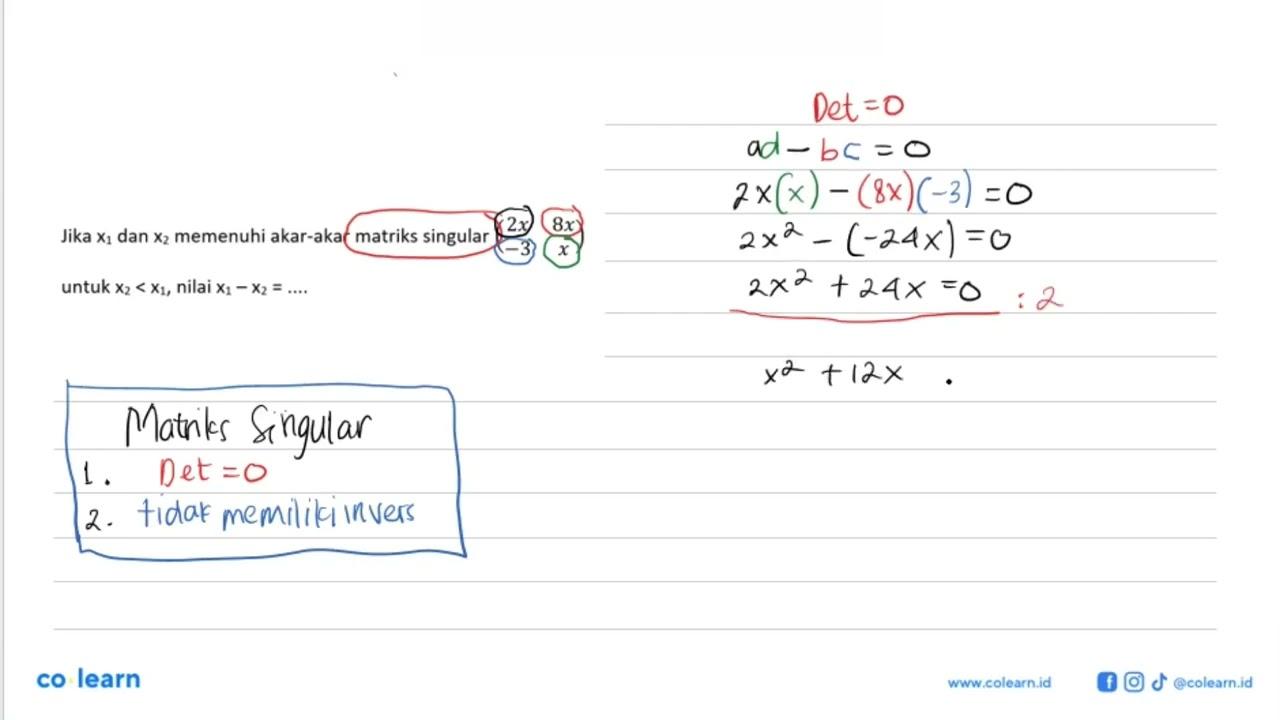 Jika x₁ dan x₂ memenuhi akar-akar matriks singular (2x 8x
−3 x)
untuk x₂ < x₁, nilai x₁ – x₂ = ....
Matriks Singular
1. Det = 0
2. tidak memiliki invers
Det = 0
ad − bc = 0
2x(x) − (8x)(−3) = 0
2x² − (−24x) = 0
2x² + 24x = 0 : 2
x² + 12x
co learn
www.colearn.id
@colearn.id